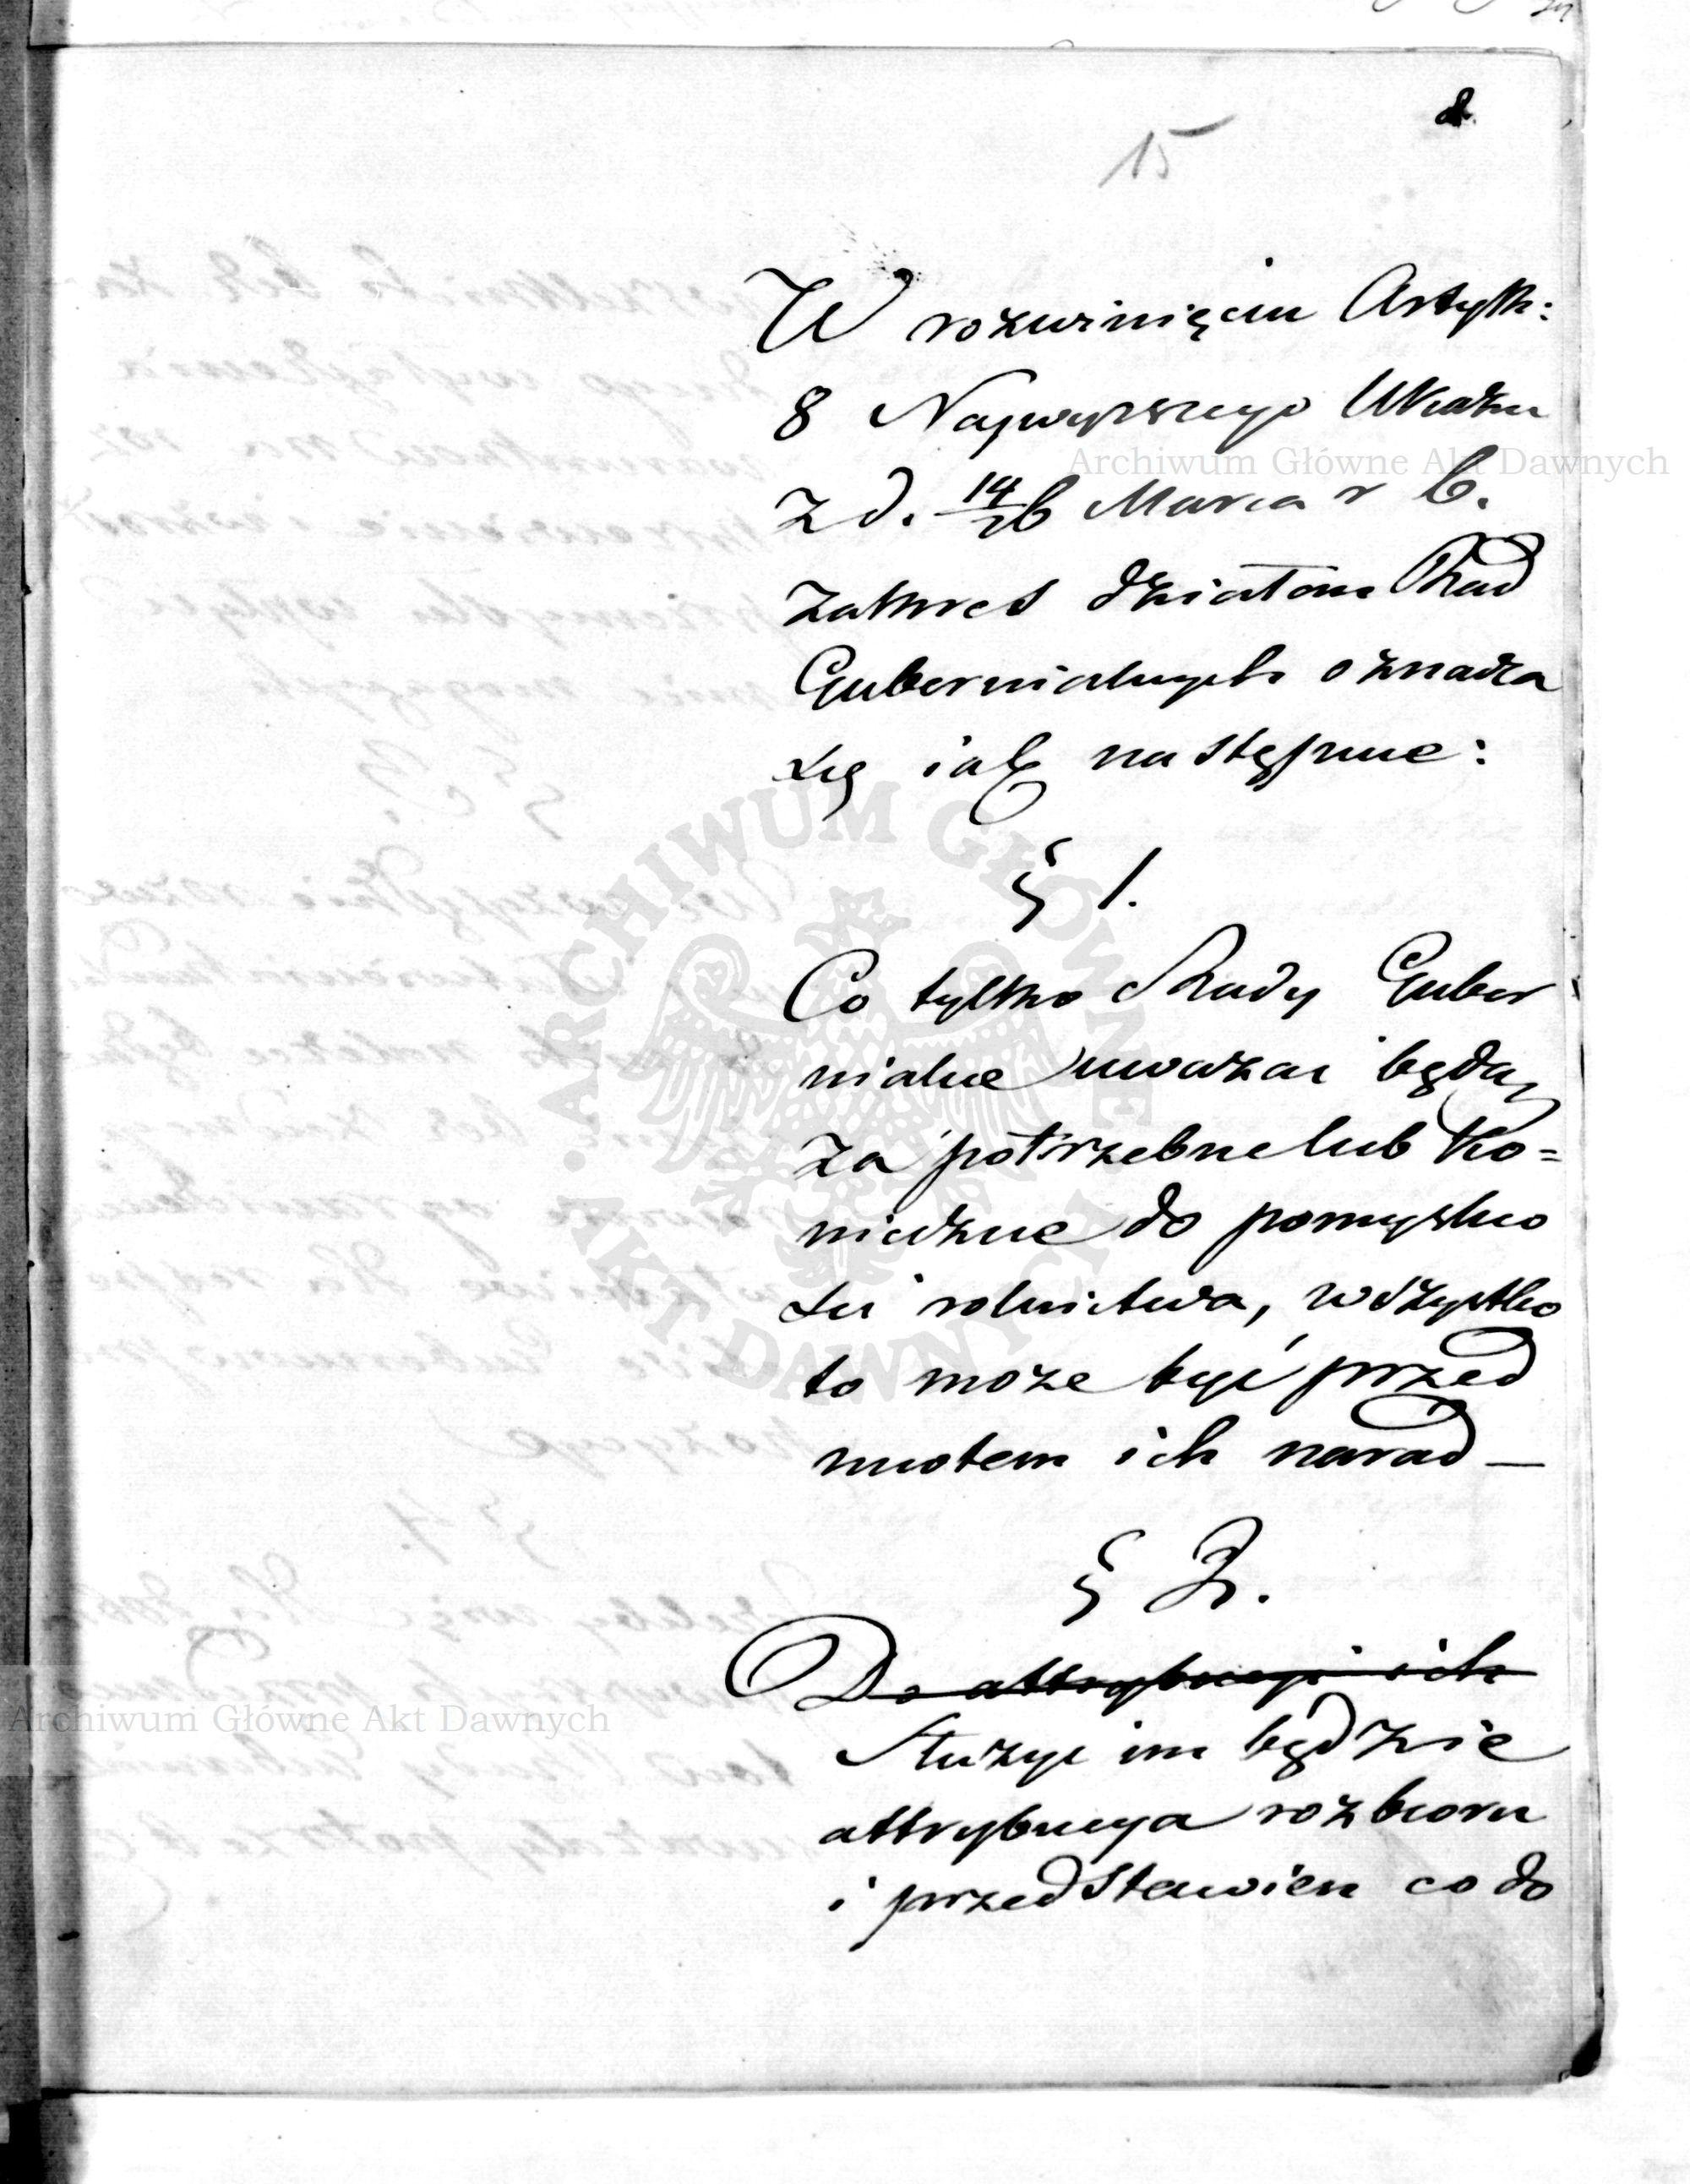 15
W rozwinięciu Artyk:
8 Najwyższego Ukazu
z d. 14/26 Marca r b.
zakres działań Rad
Gubernialnych oznacza
się iak następuie:
§ 1.
Co tylko Rady Guber
nialne uważać będą
za potrzebne lub ko=
nieczne do pomyślno
ści rolnictwa, wszystko
to może być przed
miotem ich narad —
§ 2.
Do attrybucyi ich
Służyć im będzie
attrybucya rozbioru
i przedstawień co do
Archiwum Główne Akt Dawnych
Archiwum Główne Akt Dawnych
ARCHIWUM GŁÓWNE AKT DAWNYCH